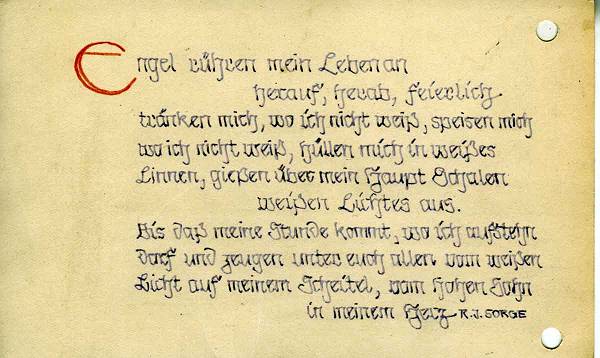 Engel rühren mein Leben an
herauf, herab, feierlich
tränken mich, wo ich nicht weiß, speisen mich
wo ich nicht weiß, hüllen mich in weißes
Linnen, gießen über mein Haupt Schalen
weißen Lichtes aus.
Bis daß meine Stunde kommt, wo ich aufstehn
darf und zeugen unter euch allen vom weißen
Licht auf meinem Scheitel, vom hohen Sohn
in meinem Herz R.J. SORGE